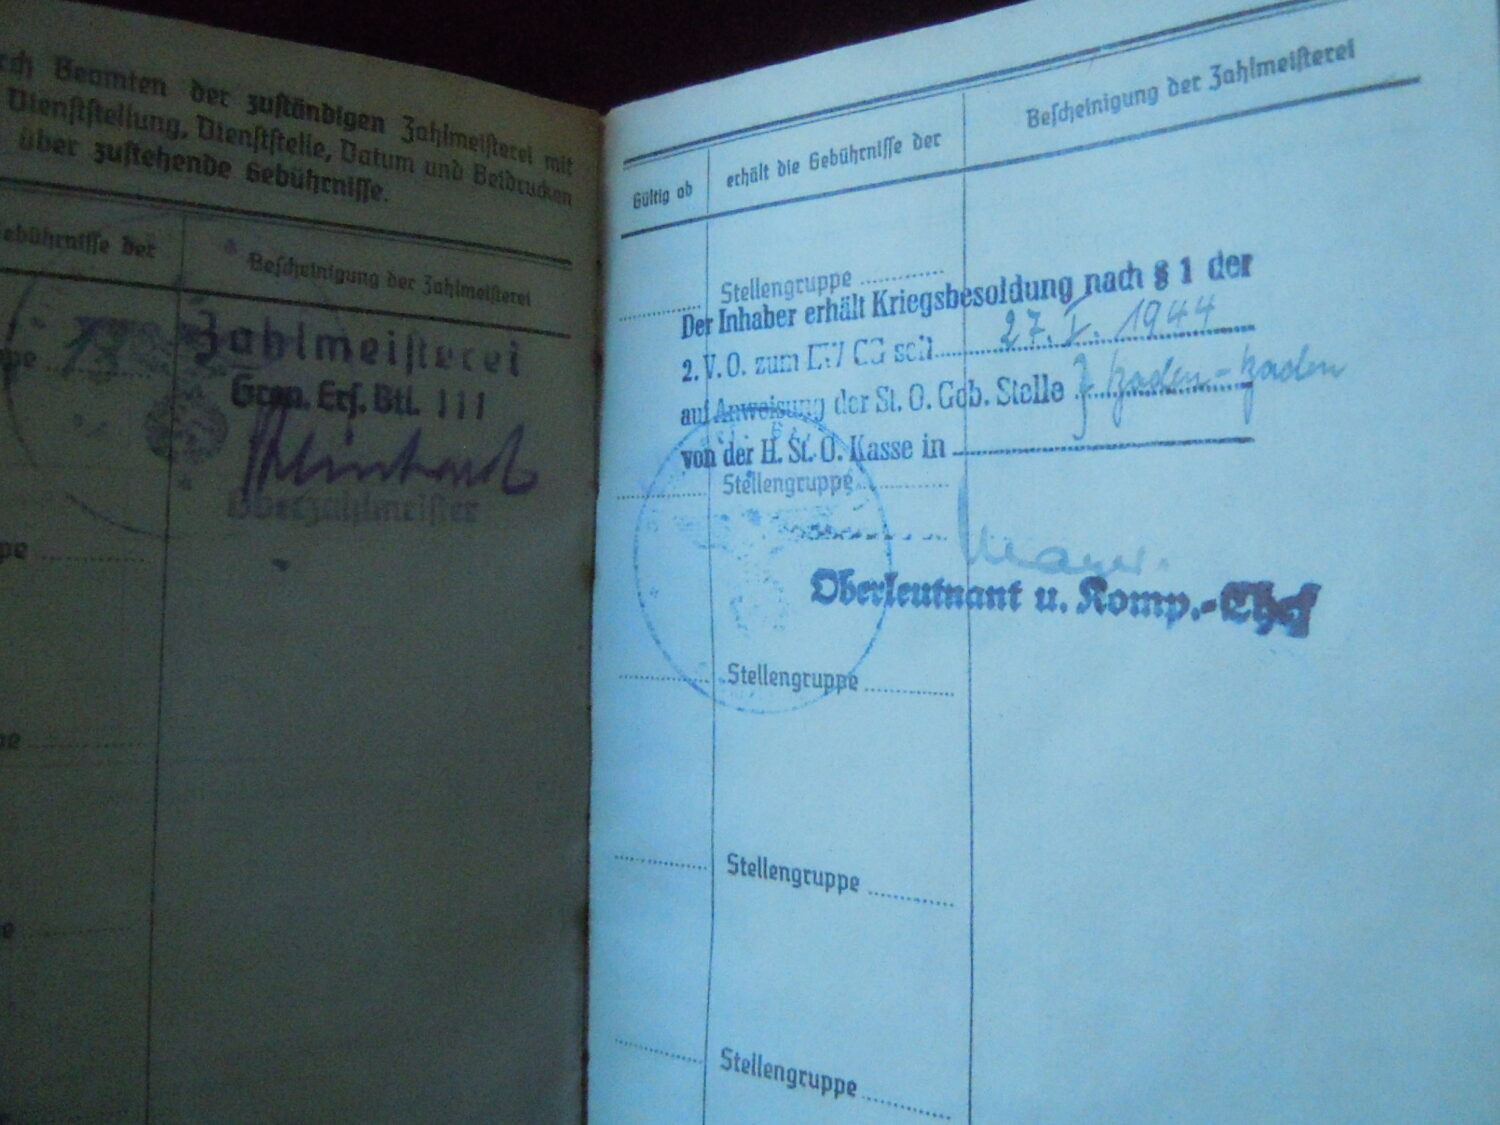 rch Beamten der zuständigen Zahlmeisterei mit
Dienststellung, Dienststelle, Datum und Beidrucken
über zustehende Gebührnisse.
ebührnisse der
Bescheinigung der Zahlmeisterei
Zahlmeisterei
pe
Gren. Ers. Btl. 111
Oberzahlmeister
pe
pe
e
Gültig ab
erhält die Gebührnisse der
Bescheinigung der Zahlmeisterei
Stellengruppe
Der Inhaber erhält Kriegsbesoldung nach § 1 der
2. V. O. zum EWGG seit 27. I. 1944
auf Anweisung der St. O. Geb. Stelle Baden-Baden
von der H. St. O. Kasse in
Stellengruppe
Oberleutnant u. Komp.-Chef
Stellengruppe
Stellengruppe
Stellengruppe